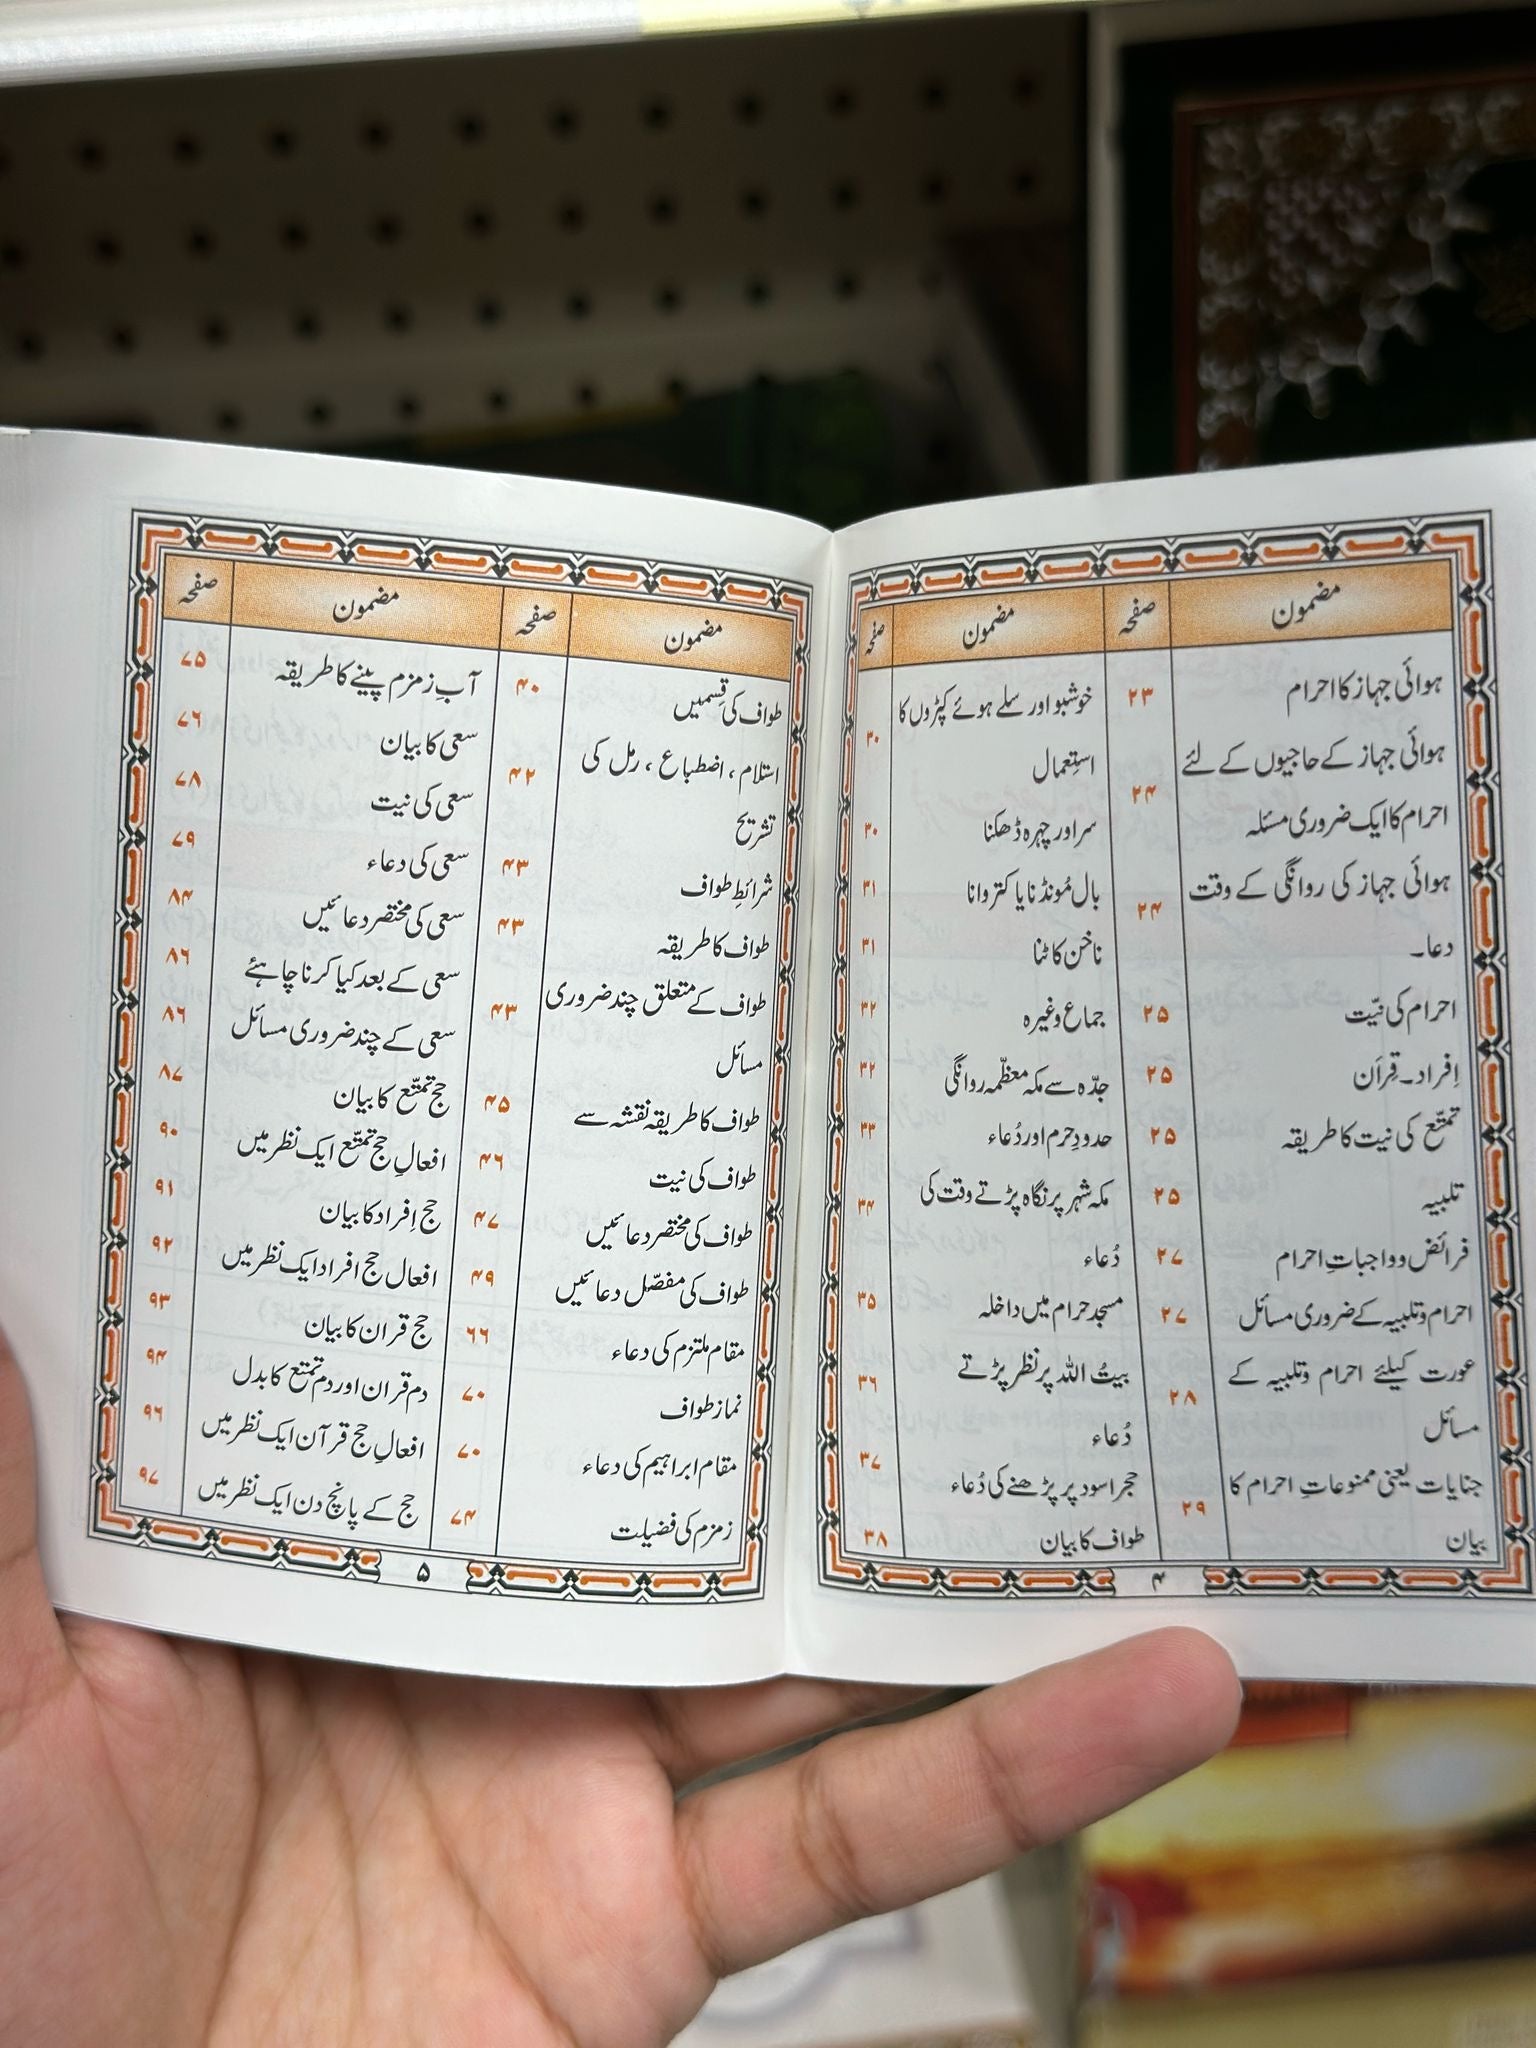 مضمون
صفحہ
ہوائی جہاز کا احرام
۲۳
ہوائی جہاز کے حاجیوں کے لئے
احرام کا ایک ضروری مسئلہ
۲۴
ہوائی جہاز کی روانگی کے وقت
دعا۔
۲۴
احرام کی نیّت
۲۵
اِفراد۔ قِرآن
۲۵
تمتّع کی نیت کا طریقہ
۲۵
تلبیہ
۲۵
فرائض و واجباتِ احرام
۲۷
احرام و تلبیہ کے ضروری مسائل
۲۷
عورت کیلئے احرام و تلبیہ کے
مسائل
۲۸
جنایات یعنی ممنوعاتِ احرام کا
بیان
۲۹
مضمون
صفحہ
خوشبو اور سلے ہوئے کپڑوں کا
استِعمال
۳۰
سر اور چہرہ ڈھکنا
۳۰
بال مُونڈنا یا کتروانا
۳۱
ناخن کاٹنا
۳۱
جماع وغیرہ
۳۲
جدّہ سے مکہ معظّمہ روانگی
۳۲
حدودِ حرم اور دُعاء
۳۳
مکہ شہر پر نگاہ پڑتے وقت کی
دُعاء
۳۴
مسجد حرام میں داخلہ
۳۵
بیتُ اللہ پر نظر پڑتے
دُعاء
۳۶
حجر اسود پر پڑھنے کی دُعاء
۳۷
طواف کا بیان
۳۸
۴
مضمون
صفحہ
طواف کی قِسمیں
۴۰
استلام، اضطباع، رمل کی
تشریح
۴۲
شرائطِ طواف
۴۳
طواف کا طریقہ
۴۳
طواف کے متعلق چند ضروری
مسائل
۴۳
طواف کا طریقہ نقشہ سے
۴۵
طواف کی نیت
۴۶
طواف کی مختصر دعائیں
۴۷
طواف کی مفصّل دعائیں
۴۹
مقام ملتزم کی دعاء
۶۶
نماز طواف
۷۰
مقام ابراہیم کی دعاء
۷۰
زمزم کی فضیلت
۷۴
مضمون
صفحہ
آبِ زمزم پینے کا طریقہ
۷۵
سعی کا بیان
۷۶
سعی کی نیت
۷۸
سعی کی دعاء
۷۹
سعی کی مختصر دعائیں
۸۴
سعی کے بعد کیا کرنا چاہئے
۸۶
سعی کے چند ضروری مسائل
۸۶
حج تمتّع کا بیان
۸۷
افعالِ حج تمتّع ایک نظر میں
۹۰
حج اِفراد کا بیان
۹۱
افعال حج افراد ایک نظر میں
۹۲
حج قران کا بیان
۹۳
دم قران اور دم تمتع کا بدل
۹۴
افعالِ حج قرآن ایک نظر میں
۹۶
حج کے پانچ دن ایک نظر میں
۹۷
۵